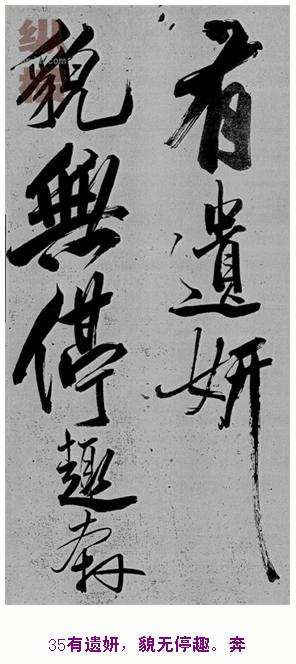 有遺妍
貌無停趣奔
35有遗妍，貌无停趣。奔